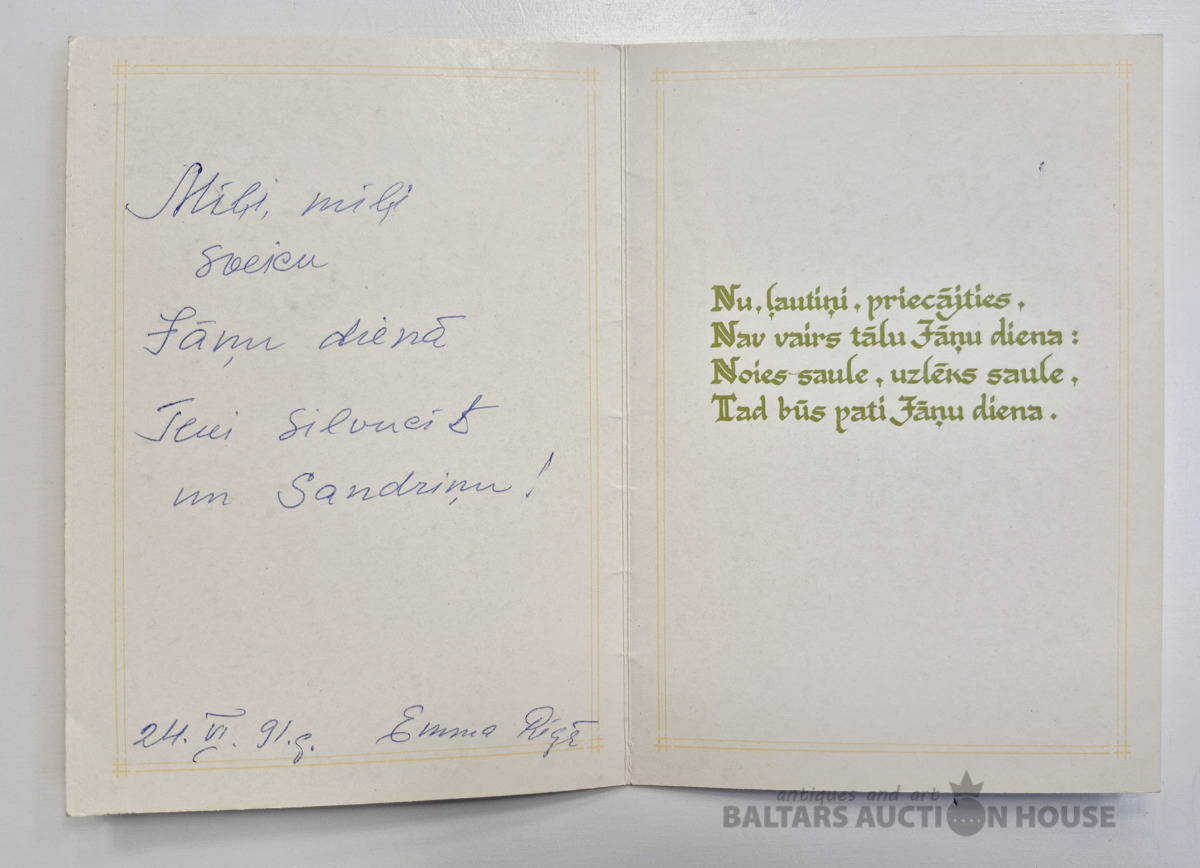 Mīļi, mīļi
sveicu
Jāņu dienā
Teni
un Sandriņu!
24. VI. 91. g. Emma Rīgā
Nu, ļautiņi, priecājties,
Nav vairs tālu Jāņu diena:
Noies saule, uzlēks saule,
Tad būs pati Jāņu diena.
antiques and art
BALTARS AUCTION HOUSE